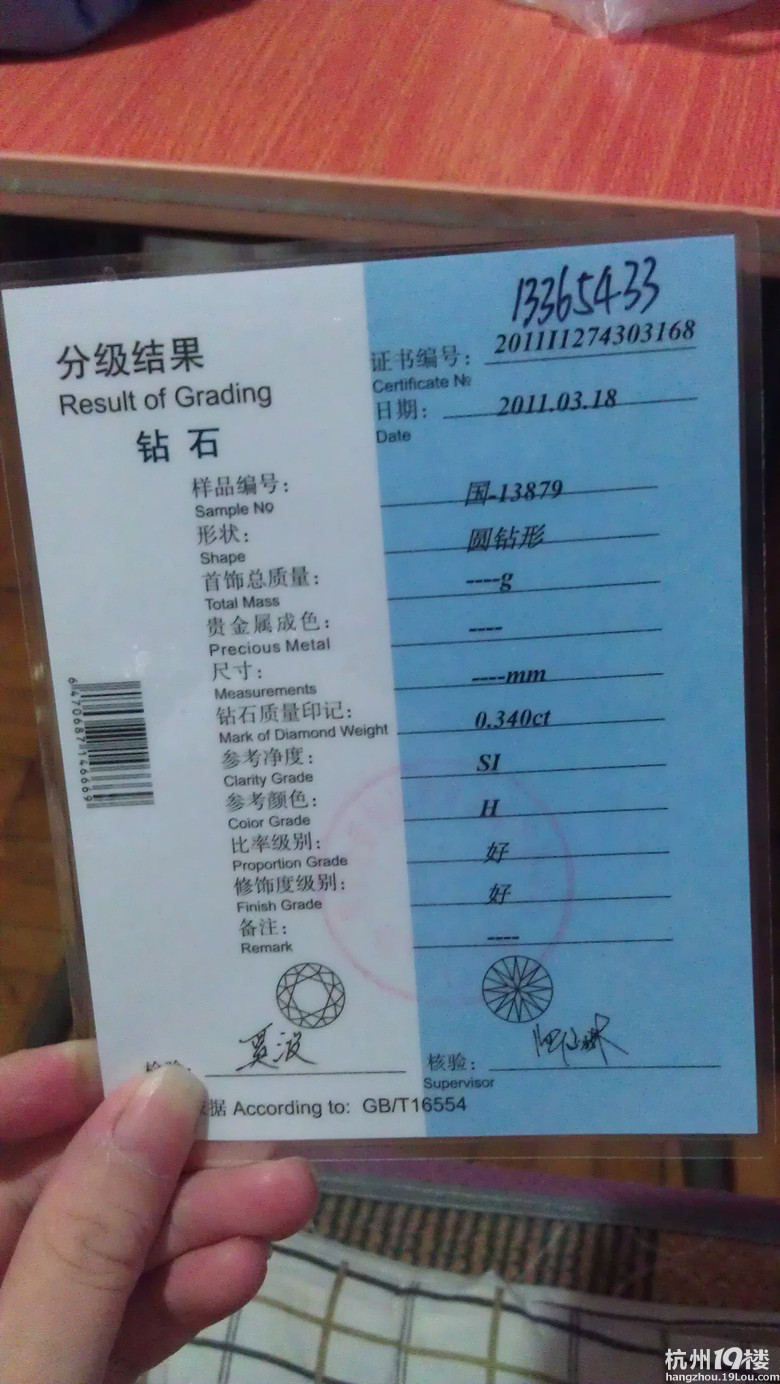 13365433
分级结果
Result of Grading
钻 石
证书编号: 201111274303168
Certificate №
日期: 2011.03.18
Date
样品编号: 国-13879
Sample No
形状: 圆钻形
Shape
首饰总质量: ----g
Total Mass
贵金属成色: ----
Precious Metal
尺寸: ----mm
Measurements
钻石质量印记: 0.340ct
Mark of Diamond Weight
参考净度: SI
Clarity Grade
参考颜色: H
Color Grade
比率级别: 好
Proportion Grade
修饰度级别: 好
Finish Grade
备注: ----
Remark
6470687146669
核验:
Supervisor
据 According to: GB/T16554
杭州19楼
hangzhou.19Lou.com